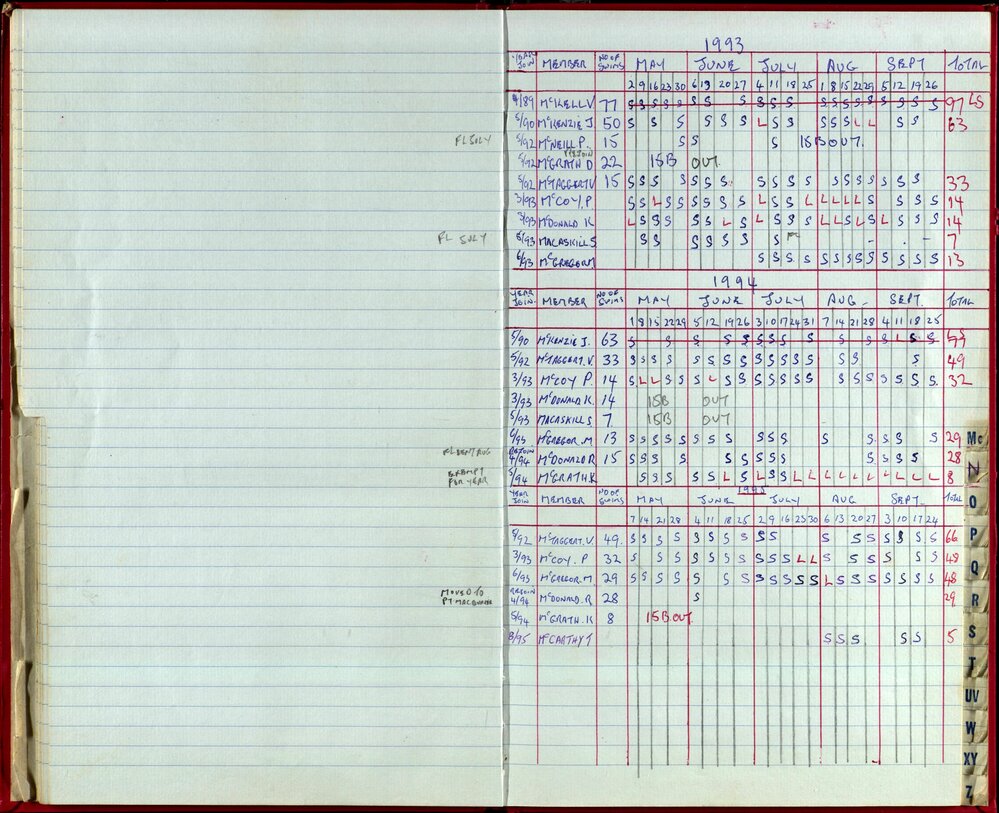 1993
YEAR JOIN MEMBER NO OF SWIMS MAY JUNE JULY AUG SEPT TOTAL
2 9 16 23 30 6 13 20 27 4 11 18 25 1 8 15 22 29 5 12 19 26
4/89 McKELL V 77 S S S S S S S S S S S S S S S S S S S S 97 LS
5/90 McKENZIE J. 50 S S S S S S L S S S S S L L S S 63
FL JULY 5/92 McNEILL P. 15 S S S ISB OUT.
5/92 McGRATH D 22 ISB OUT
5/92 McTAGGERT V 15 S S S S S S S S S S S S S S S S S S 33
3/93 McCOY, P S S L S S S S S S L S S L L L L L S S S S S 14
3/93 McDONALD K L S S S S S L S L S S S L L S L S L S S S 14
FL JULY 5/93 MACASKILL S S S S S S S S FL - . - 7
6/93 McGREGOR M S S S S S S S S S S S S S 13
1994
YEAR JOIN. MEMBER NO OF SWIMS MAY JUNE JULY AUG SEPT. TOTAL
1 8 15 22 29 5 12 19 26 3 10 17 24 31 7 14 21 28 4 11 18 25
5/90 McKENZIE J. 63 S S S S S S S S S S S S S L S S
5/92 McTAGGERT. V. 33 S S S S S S S S S S S S S S S S 49
3/93 McCOY P. 14 S L L S S S L S S S S S S S S S S S S S S 32
3/93 McDONALD K. 14 ISB OUT
5/93 MACASKILL S 7. ISB OUT
6/93 McGREGOR. M 13 S S S S S S S S S S S S S S S S 29
FL SENT AUG REJOIN 4/94 McDONALD R 15 S S S S S S S S S S S S S 28
EXEMPT FOR YEAR 5/94 McGRATH. K S S S S S L S L S S L L L L L L L L L L 8
1995
YEAR JOIN MEMBER NO OF SWIMS MAY JUNE JULY AUG SEPT. TOTAL
7 14 21 28 4 11 18 25 2 9 16 23 30 6 13 20 27 3 10 17 24
5/92 McTAGGERT. V. 49. S S S S S S S S S S S S S S S S S 66
3/93 McCOY. P 32 S S S S S S S S S S S L L S S S S S S 48
6/93 McGREGOR. M 29 S S S S S S S S S S S S L S S S S S S S 48
MOVED TO PT MACQUARIE REJOIN 4/94 McDONALD. R 28 S 29
5/94 McGRATH. K 8 ISB OUT.
8/95 McCARTHY T S S S S S 5
Mc
N
O
P
Q
R
S
T
UV
W
XY
Z